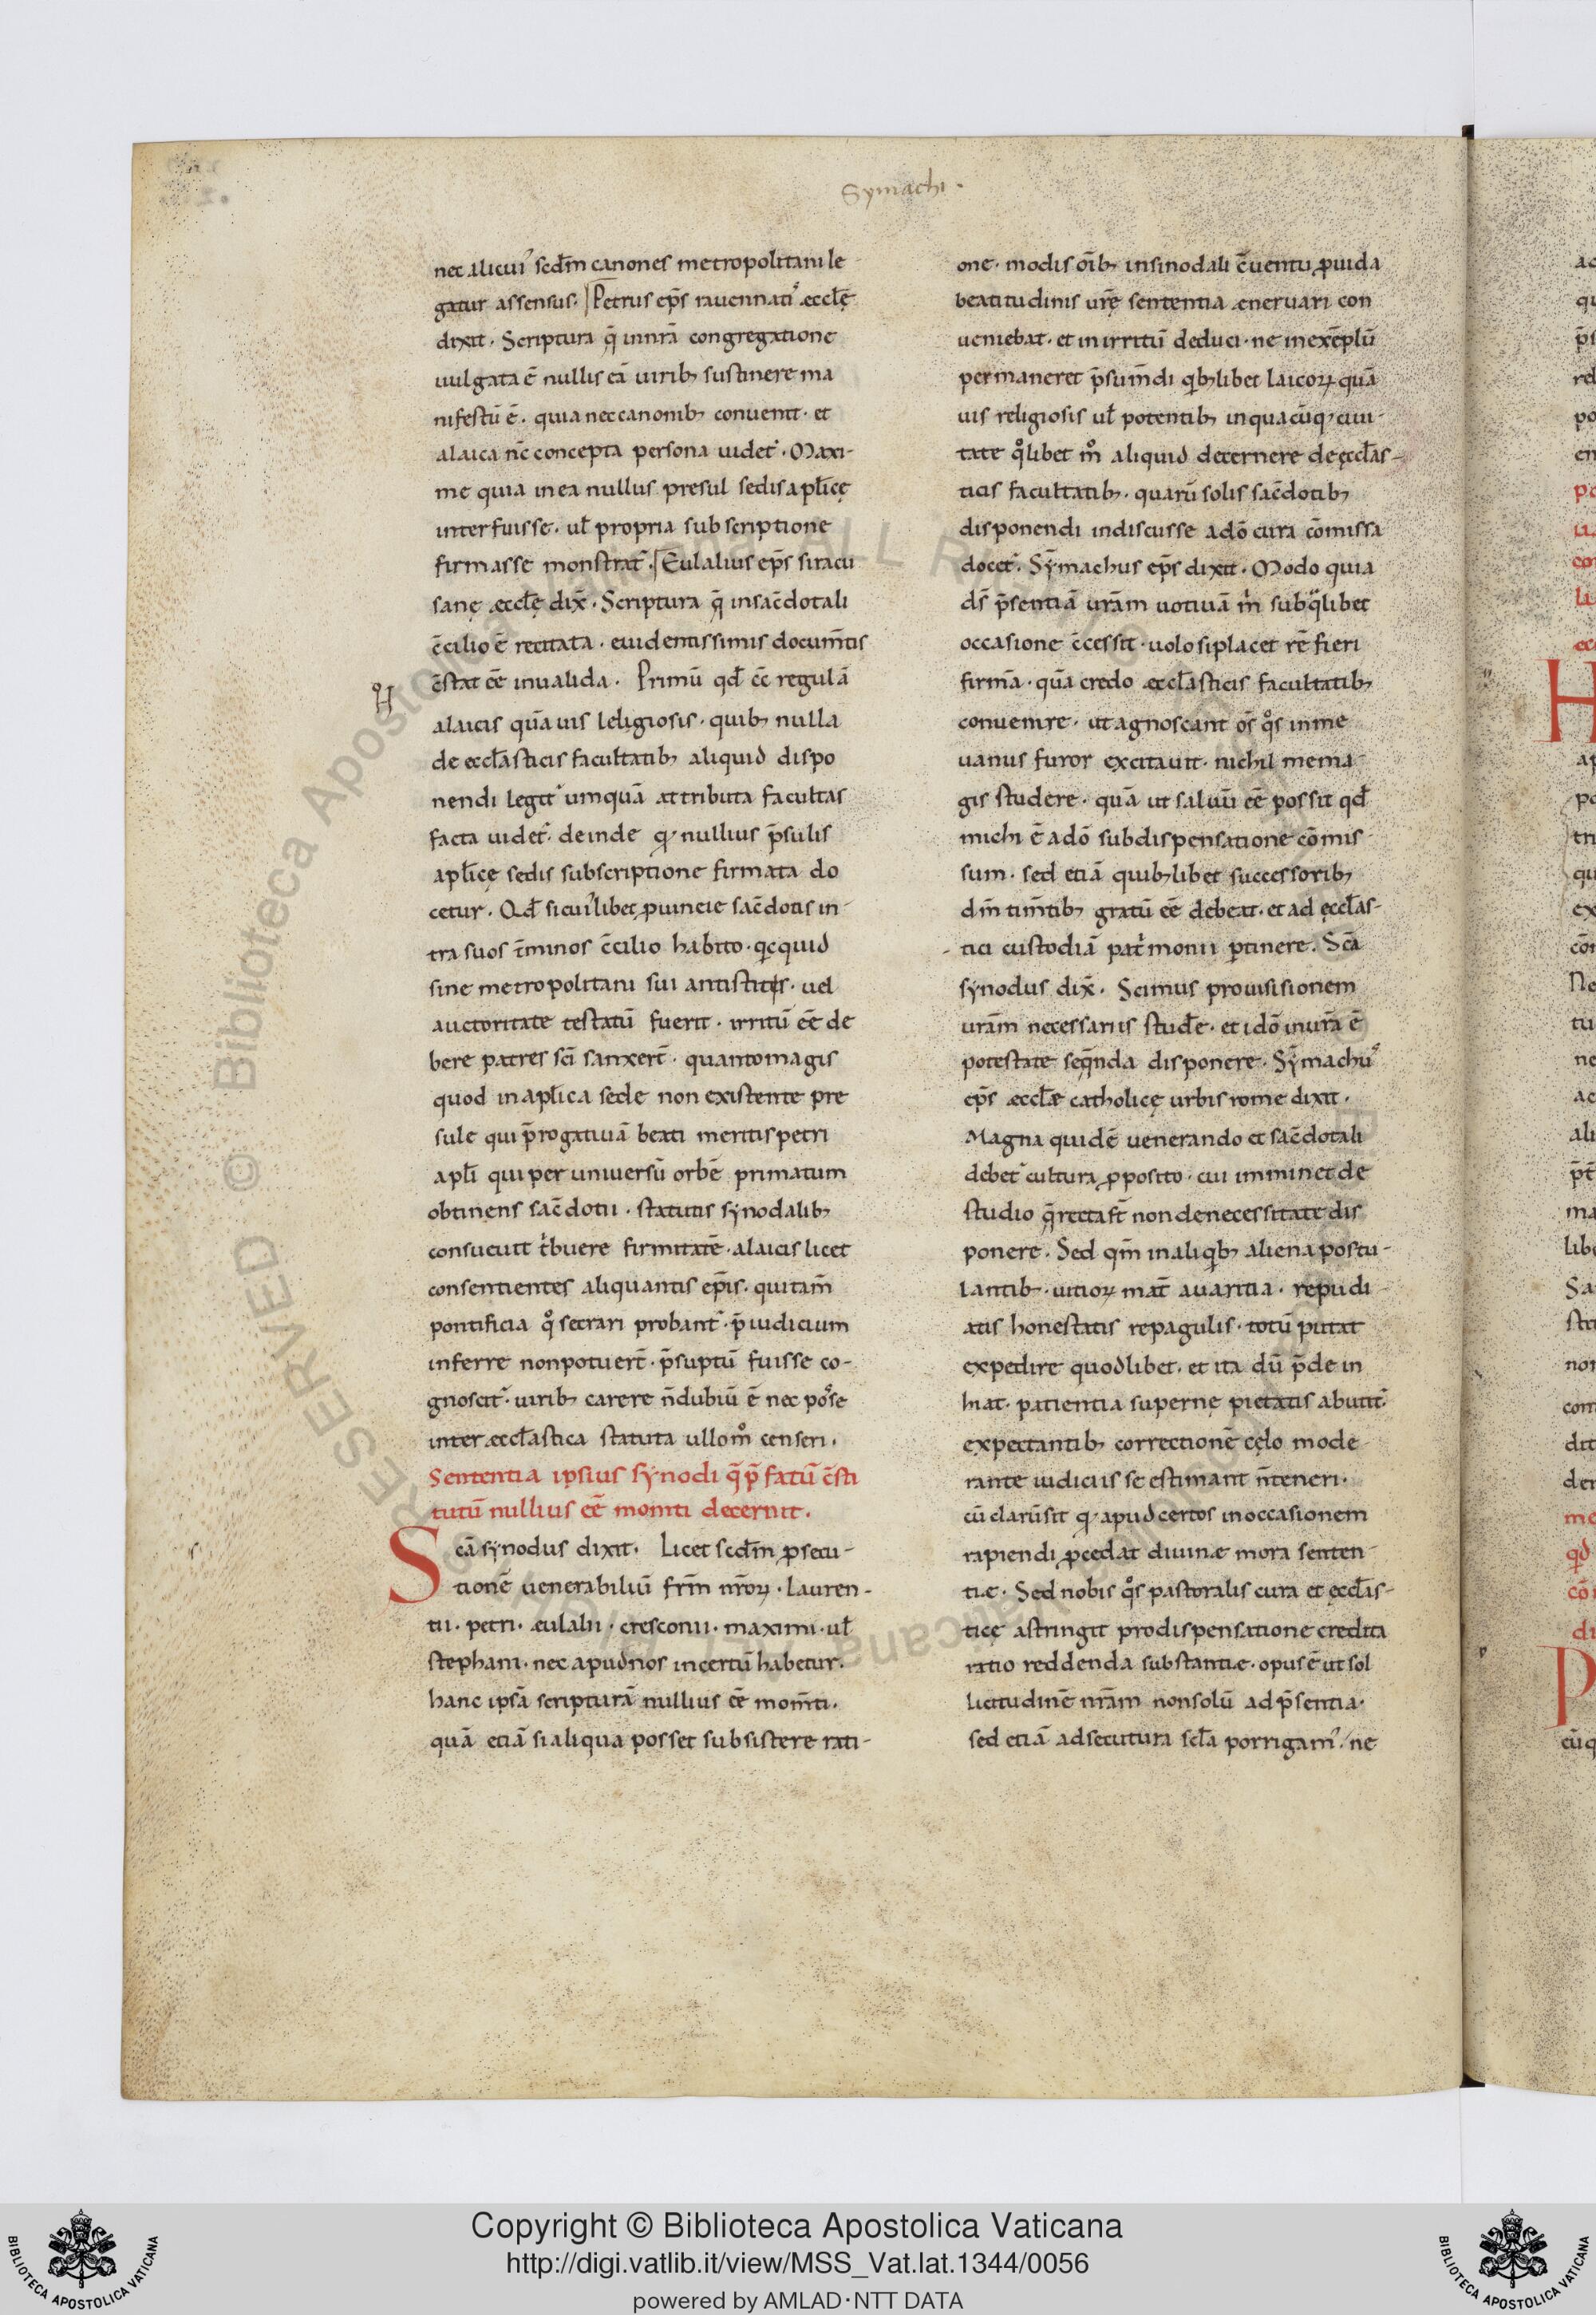 Symachi.
nec alicui᾽ scd̄m canones metropolitani le
gatur assensus. Petrus ep̄s rauennati᾽ æccłę
dixit. Scriptura q̄ innr̄a congregatione
uulgata ē nullis eā uirib; sustinere ma
nifestū ē. quia nec canonib; conuenit. et
alaica n̄c concepta persona uidet᾽. Maxi-
me quia in ea nullus presul sedis apl̄icę
interfuisse. ul̄ propria subscriptione
firmasse monstrat᾽. Eulalius ep̄s siracu
sanę æccłę dix̄. Scriptura q̄ insac̄dotali
c̄cilio ē recitata. euidentissimis docum̄tis
c̄stat eē inualida. Primū qđ c̄ regulā
alaicis quāuis leligiosis. quib; nulla
de eccl̄asticis facultatib; aliquid dispo
nendi legit᾽ umquā attributa facultas
facta uidet᾽. deinde q᾽ nullius p̄sulis
apl̄icę sedis subscriptione firmata do
cetur. Qđ si cui᾽libet ꝓuincie sac̄dotis in-
tra suos t̄minos c̄cilio habito. qicquid
sine metropolitani sui antistitis. uel
auctoritate testatū fuerit. irritū eē de
bere patres sc̄i sanxer̄t. quantomagis
quod in apl̄ica sede non existente pre
sule qui p̄rogatiuā beati meritis petri
apl̄i qui per uniuersū orbē primatum
obtinens sac̄dotii. statutis synodalib;
consueuit tribuere firmitatē. alaicis licet
consentientes aliquantis ep̄is. qui tam̄
pontificia qo secrari probant᾽. p̄iudicium
inferre nonpotuer̄t. p̄suptū fuisse co-
gnoscit᾽. uirib; carere n̄dubiū ē nec posse
inter æccl̄astica statuta ullom̊ censeri.
Sententia ipsius synodi q̄ p̄fatū c̄sti
tutū nullius eē momti decernit.
Scā synodus dixit. Licet scd̄m ꝓsecu-
tionē uenerabiliū fr̄m nr̄oꝝ. Lauren-
tii. petri. eulalii. cresconii. maximi. ul̄
stephani. nec apud nos incertū habetur.
hanc ipsā scripturā nullius eē mom̄ti.
quā etiā si aliqua posset subsistere rati-
one. modis oīb; insinodali c̄uentu ꝓuida
beatitudinis ur̄ę sententia æneruari con
ueniebat. et in irritū deduci. ne inexēplū
permaneret p̄sum̄di qib;libet laicoꝝ quā
uis religiosis ul̄ potentib; inquacūq; ciui-
tate qolibet m̊ aliquid decernere de ęccl̄as-
ticis facultatib;. quarū solis sac̄dotib;
disponendi indiscusse adō cura cōmissa
docet᾽. Symachus ep̄s dixit. Modo quia
dś p̄sentiā ur̄am uotiuā m̄ subqalibet
occasione c̄cessit. uolo si placet rē fieri
firmā. quā credo æccl̄asticis facultatib;
conuenire. ut agnoscant oś qos inme
uanus furor excitauit. nichil me ma-
gis studere. quā ut saluū eē possit qđ
michi ē adō subdispensatione cōmis-
sum. sed etiā quib;libet successorib;
dm̄ tim̄tib; gratū eē debeat. et ad ęccl̄as-
tici custodiā patrimonii ꝑtinere. Scā
synodus dix̄. Scimus prouisisionem
ur̄am necessariis studē. et idō inur̄a ē
potestate seq̄nda disponere. Symachu᾽
ep̄s æccl̄æ catholicę urbis rome dixit.
Magna quidē uenerando et sac̄dotali
debet᾽ cultura ꝓposito. cui imminet de
studio q̄ recta st̄ non denecessitate dis
ponere. Sed qm̄ inaliqib; aliena postu-
lantib;. uitioꝝ mat̄ auaritia. repudi
atis honestatis repagulis. totū putat
expedire quodlibet. et ita dū p̄de in
hiat. patientia supernę pietatis abutit᾽.
expectantib; correctionē cęlo mode
rante iudiciis se estimant n̄teneri.
cū clarū sit q᾽ apud certos inoccasionem
rapiendi ꝓcedat diuinæ mora senten-
tiæ. Sed nobis qos pastoralis cura et ęccl̄as-
ticę astringit pro dispensatione credita
ratio reddenda substantiæ. opus ē ut sol
licitudinē nr̄am nonsolū ad p̄sentia.
sed etiā adsecutura scl̄a porrigam᾽. ne
Copyright © Biblioteca Apostolica Vaticana
http://digi.vatlib.it/view/MSS_Vat.lat.1344/0056
powered by AMLAD·NTT DATA
BIBLIOTECA APOSTOLICA VATICANA
BIBLIOTECA APOSTOLICA VATICANA